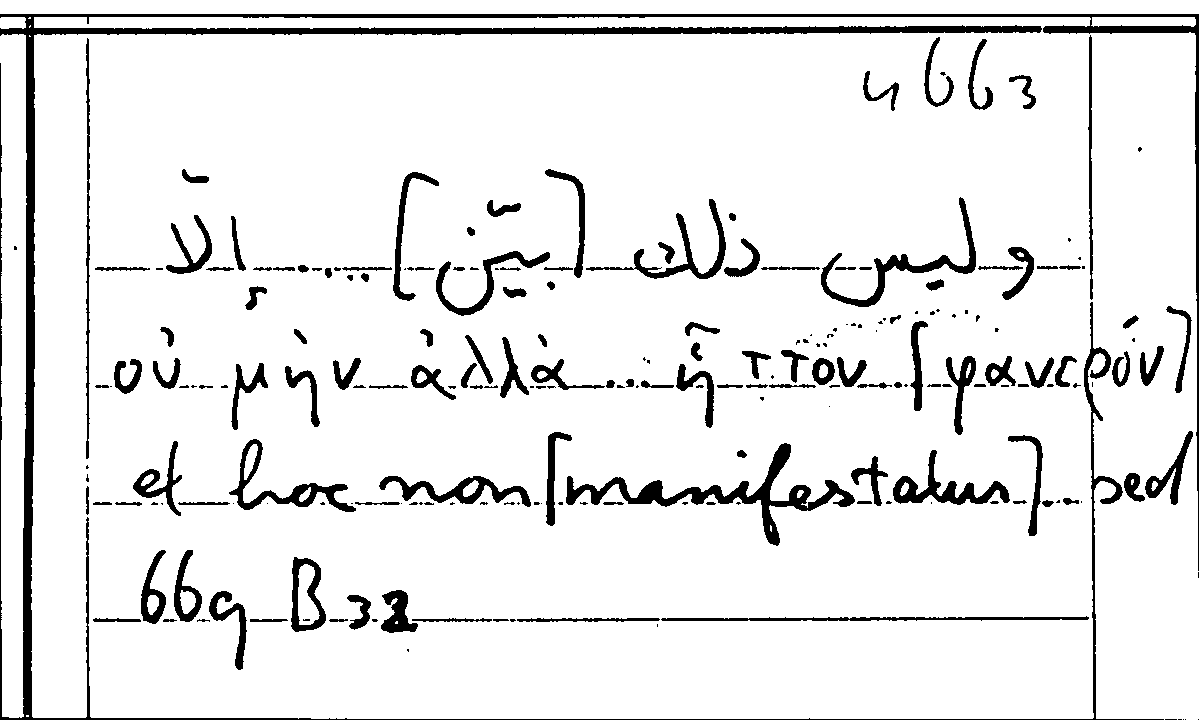 4663
وليس ذلك [بيّن] .... إلّا
οὐ μὴν ἀλλὰ ... ἧττον .. [φανερόν]
et hoc non [manifestatus] ... sed
669 B 32